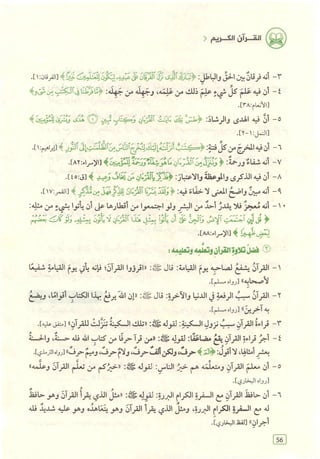 القـرآن الكـريـم
٣- أنه فرقانٌ بين الحقِّ والباطلِ: ﴿تَبَارَكَ الَّذِي نَزَّلَ الْفُرْقَانَ عَلَى عَبْدِهِ لِيَكُونَ لِلْعَالَمِينَ نَذِيرًا﴾ [الفرقان:١].
٤- أن فيه علمَ كلِّ شيءٍ علِمَ ذلك من علِمَه، وجهِلَه من جهِلَه: ﴿مَا فَرَّطْنَا فِي الْكِتَابِ مِنْ شَيْءٍ﴾
[الأنعام:٣٨].
٥- أنَّ فيه الهدى والرشادَ: ﴿طس تِلْكَ آيَاتُ الْقُرْآنِ وَكِتَابٍ مُبِينٍ ۝ هُدًى وَبُشْرَى لِلْمُؤْمِنِينَ﴾
[النمل:١-٢].
٦- أن فيه المخرجَ من كلِّ فتنةٍ: ﴿كِتَابٌ أَنْزَلْنَاهُ إِلَيْكَ لِتُخْرِجَ النَّاسَ مِنَ الظُّلُمَاتِ إِلَى النُّورِ﴾ [إبراهيم:١].
٧- أنه شفاءٌ ورحمةٌ: ﴿وَنُنَزِّلُ مِنَ الْقُرْآنِ مَا هُوَ شِفَاءٌ وَرَحْمَةٌ لِلْمُؤْمِنِينَ﴾ [الإسراء:٨٢].
٨- أن فيه الذكرى والموعظةَ والاعتبارَ: ﴿فَذَكِّرْ بِالْقُرْآنِ مَنْ يَخَافُ وَعِيدِ﴾ [ق:٤٥].
٩- أنه مبينٌ واضحُ المعنى لا خفاءَ فيه: ﴿وَلَقَدْ يَسَّرْنَا الْقُرْآنَ لِلذِّكْرِ فَهَلْ مِنْ مُدَّكِرٍ﴾ [القمر:١٧].
١٠- أنه مُعجِزٌ فلا يقدرُ أحدٌ من البشرِ ولو اجتمعوا من أقطارِها على أن يأتوا بشيءٍ من مثلِه:
﴿قُلْ لَئِنِ اجْتَمَعَتِ الْإِنْسُ وَالْجِنُّ عَلَى أَنْ يَأْتُوا بِمِثْلِ هَذَا الْقُرْآنِ لَا يَأْتُونَ بِمِثْلِهِ وَلَوْ كَانَ بَعْضُهُمْ
لِبَعْضٍ ظَهِيرًا﴾ [الإسراء:٨٨].
٢ فضل تلاوة القرآن وتعلُّمه وتعليمه:
١- القرآنُ يشفعُ لصاحبِه يومَ القيامةِ: قال ﷺ: «اقرؤوا القرآنَ؛ فإنه يأتي يومَ القيامةِ شفيعًا
لأصحابِه» [رواه مسلم].
٢- القرآنُ سببُ الرفعةِ في الدنيا والآخرةِ: قال ﷺ: «إن اللهَ يرفعُ بهذا الكتابِ أقوامًا، ويضعُ
به آخرين» [رواه مسلم].
٣- قراءةُ القرآنِ سببُ نزولِ السكينةِ: لقوله ﷺ: «تلك السكينةُ تنزَّلت للقرآنِ» [متفق عليه].
٤- أجرُ قراءةِ القرآنِ يقعُ مضاعفًا: لقوله ﷺ: «من قرأ حرفًا من كتابِ الله فله حسنةٌ، والحسنةُ
بعشرِ أمثالِها، لا أقولُ: ﴿الم﴾ حرفٌ، ولكن ألفٌ حرفٌ، ولامٌ حرفٌ، وميمٌ حرفٌ» [رواه الترمذي].
٥- أن معلمَ القرآنِ ومتعلمَه هم خيرُ الناسِ: لقوله ﷺ: «خيرُكم من تعلَّم القرآنَ وعلَّمه»
[رواه البخاري].
٦- أن حافظَ القرآنِ مع السفرةِ الكرامِ البررةِ: لقوله ﷺ: «مثلُ الذي يقرأُ القرآنَ وهو حافظٌ
له مع السفرةِ الكرامِ البررةِ، ومثلُ الذي يقرأُ القرآنَ وهو يتعاهدُه وهو عليه شديدٌ فله
أجرانِ» [لفظ البخاري].
56